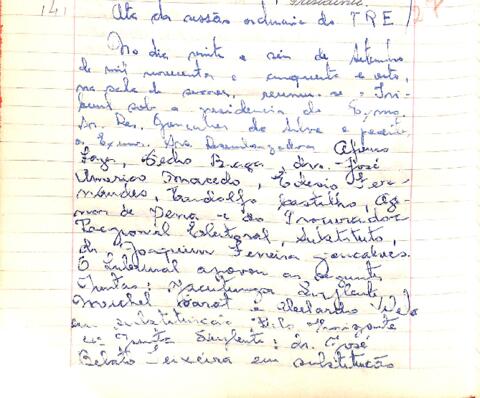 Presidente
Ata da sessão ordinaria do TRE
No dia vinte e seis de Setembro
de mil novecentos e cinquenta e oito,
na sala de sessões, reuniu-se o Tri-
bunal sob a presidencia do Exmo.
Sr. Des. Gonçalves da Silva e presentes
os Exmos. Srs. Desembargadores Afonso
Lages, Pedro Braga, drs. José
Americo Macedo, Edesio Fer-
nandes, Landolfo Castilho,
de Sena e do Procurador
Regional Eleitoral, Substituto,
dr. Joaquim Ferreira Gonçalves.
O Tribunal aprovou as seguintes
Juntas:
Michel e Abelardo
em substituição Belo Horizonte
Junta Suplente: dr. José
Teixeira em substituição